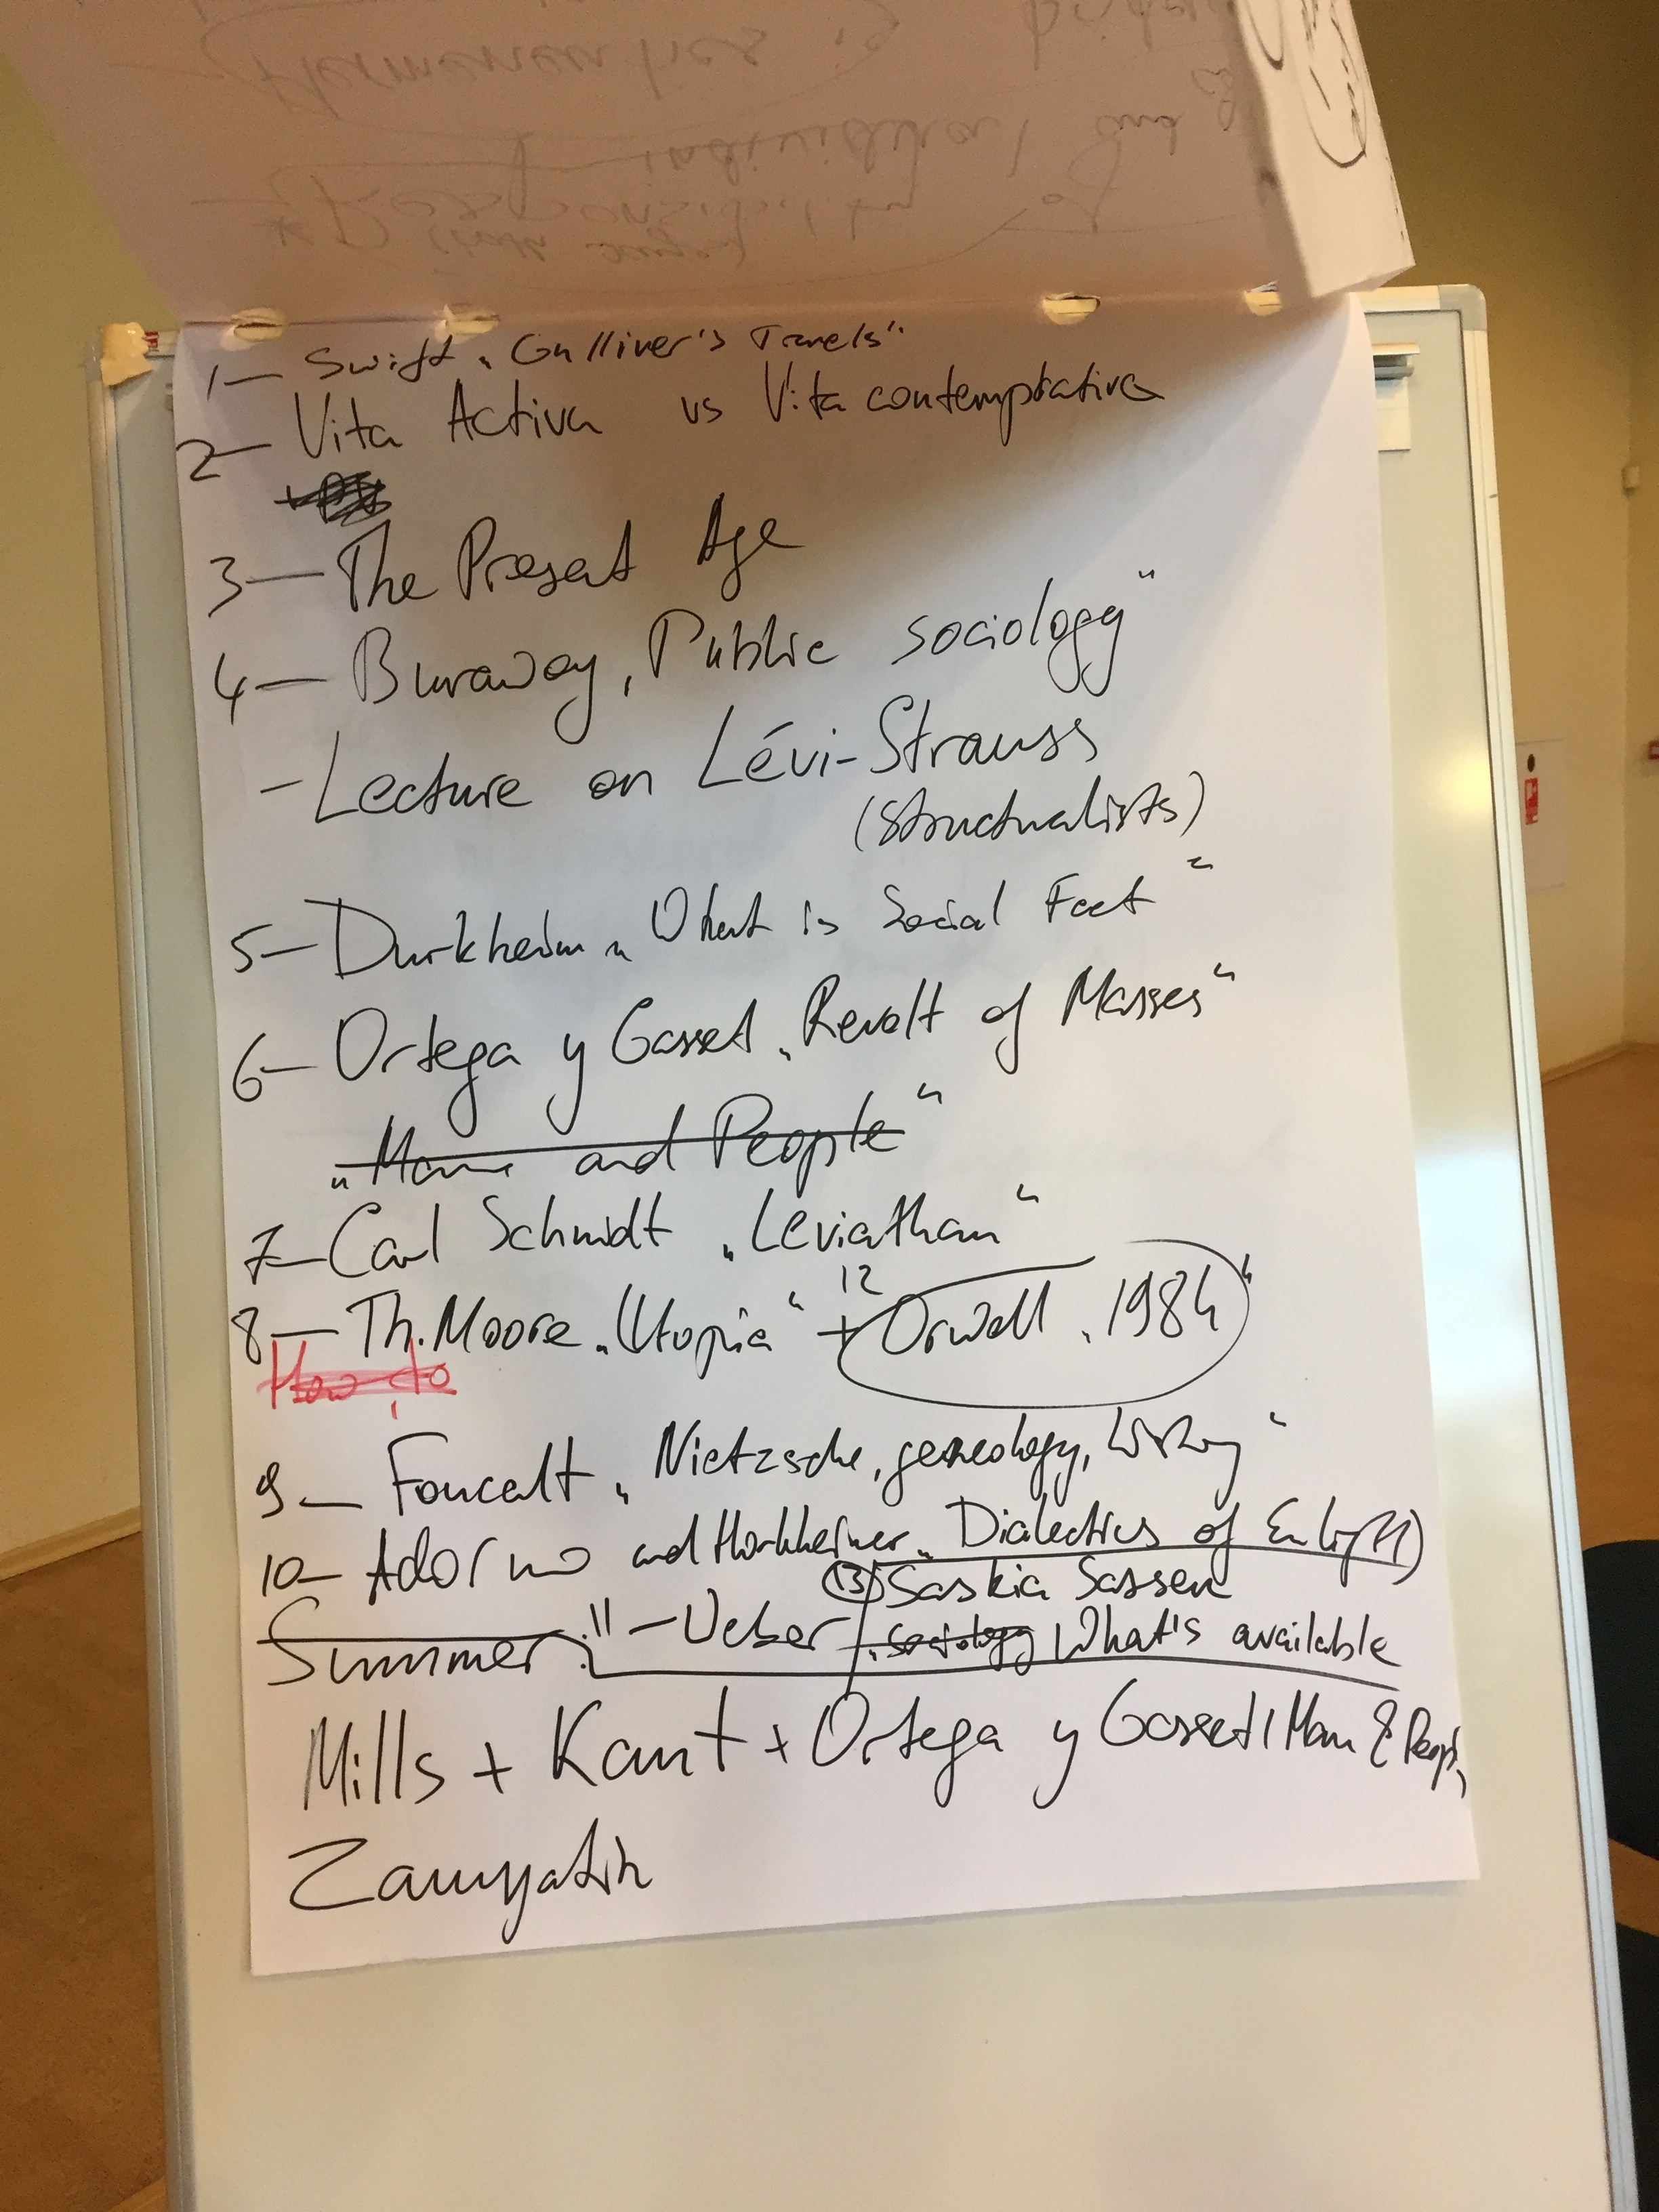 Hermeneutics is
individual and
* Responsibility of
1— Swift „Gulliver's Travels"
2— Vita Activa vs Vita contemplativa
3— The Present Age
4— Burawoy „Public sociology"
- Lecture on Lévi-Strauss
(structuralists)
5— Durkheim „What is Social Fact"
6— Ortega y Gasset „Revolt of Masses"
and People"
7— Carl Schmidt „Leviathan"
12
8— Th. Moore „Utopia" + Orwell „1984"
How to
9— Foucalt „Nietzsche, geneology, history"
10— Adorno and Horkheimer „Dialectics of Enlight)
13 Saskia Sassen
Summer: 11 — Veber „sociology What's available
Mills + Kant + Ortega y Gasset / Man & Peopl
Zamyatin